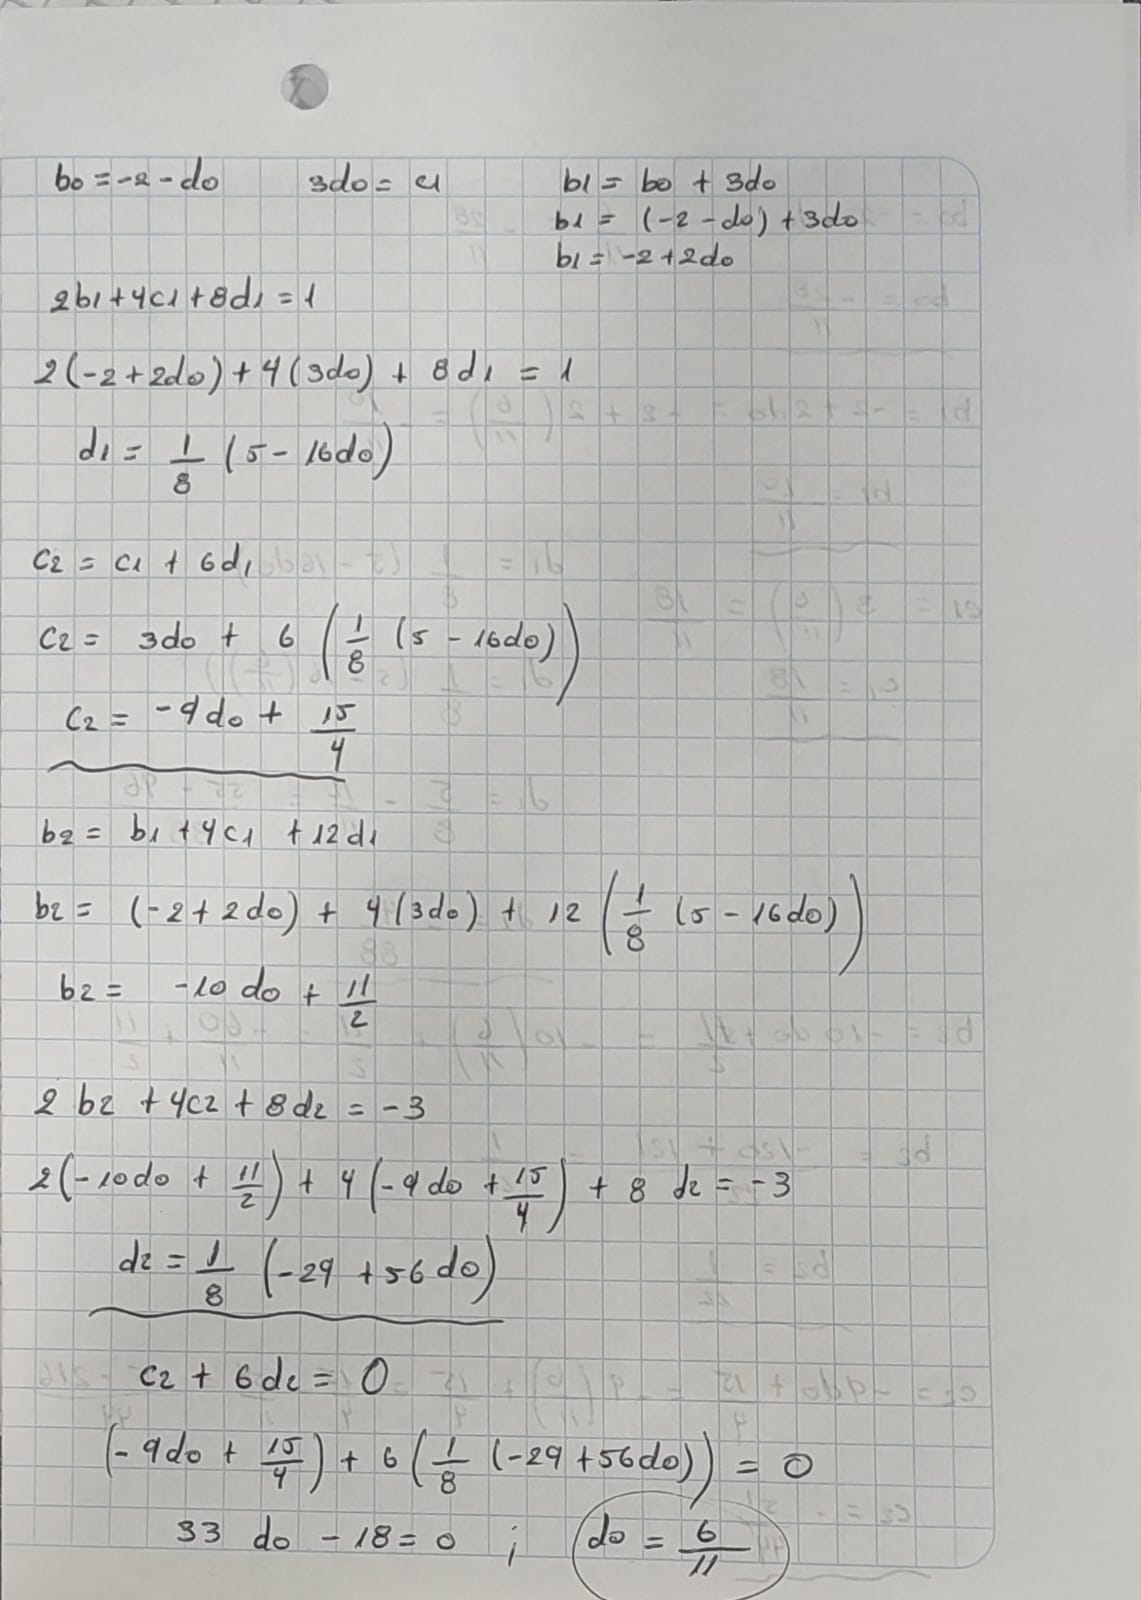 b0 = -2 - d0 3d0 = c1 b1 = b0 + 3d0
b1 = (-2 - d0) + 3d0
b1 = -2 + 2d0
2b1 + 4c1 + 8d1 = 1
2(-2 + 2d0) + 4(3d0) + 8d1 = 1
d1 = 1/8 (5 - 16d0)
c2 = c1 + 6d1
c2 = 3d0 + 6 (1/8 (5 - 16d0))
c2 = -9d0 + 15/4
b2 = b1 + 4c1 + 12d1
b2 = (-2 + 2d0) + 4(3d0) + 12 (1/8 (5 - 16d0))
b2 = -10d0 + 11/2
2b2 + 4c2 + 8d2 = -3
2(-10d0 + 11/2) + 4(-9d0 + 15/4) + 8 d2 = -3
d2 = 1/8 (-29 + 56d0)
c2 + 6d2 = 0
(-9d0 + 15/4) + 6 (1/8 (-29 + 56d0)) = 0
33 d0 - 18 = 0 ; d0 = 6/11